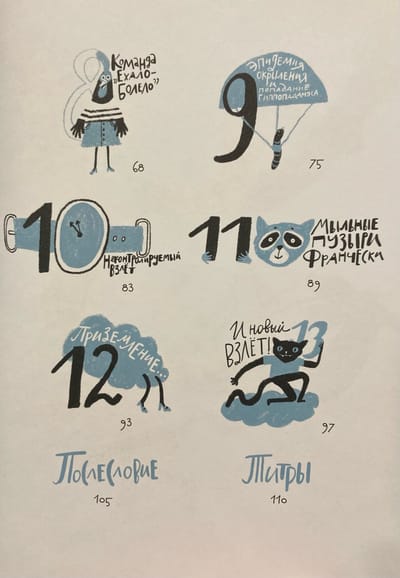 8
Команда
„Ехало-
Болело"
68
9
Эпидемия
окрыления
и
попадание
75
10
Неконтролируемый
взлёт
83
11
Мыльные
пузыри
Франчески
89
12
Приземление...
93
И новый
взлёт!
13
97
Послесловие
105
Титры
110